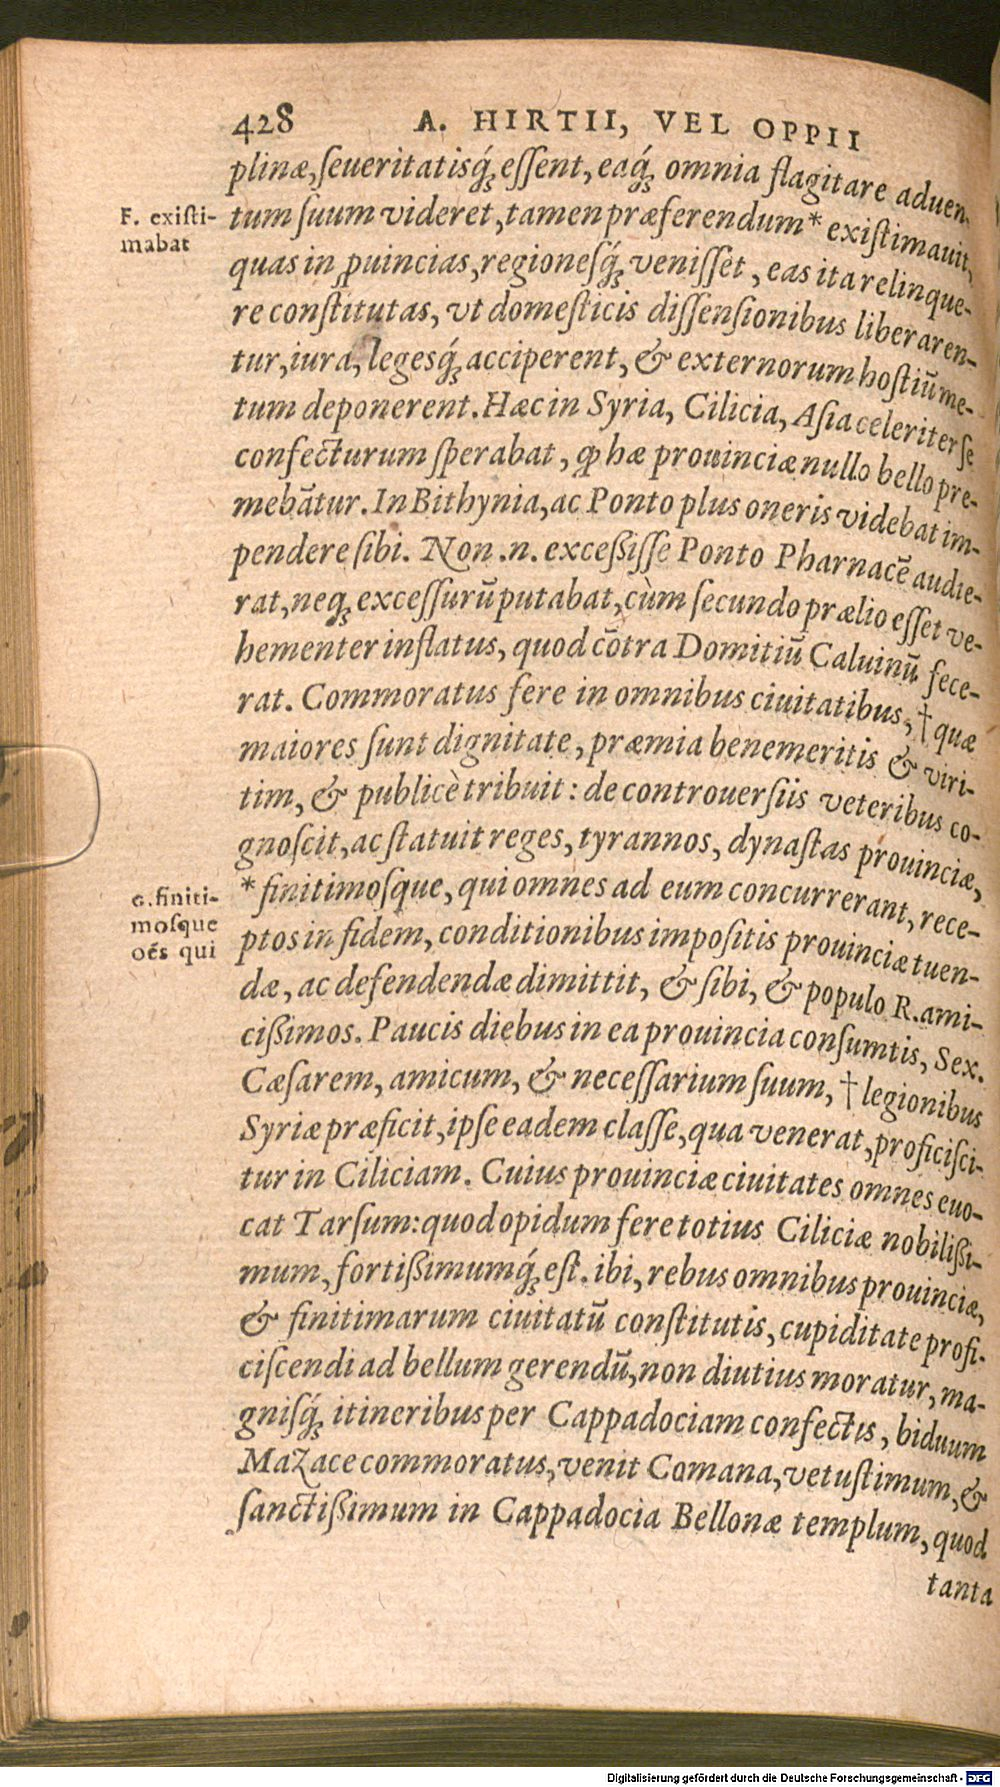 428 A. HIRTII, VEL OPPII
plinæ, ſeueritatisq́ꝫ eſſent, eaq́ꝫ omnia flagitare aduen-
F. exiſti-
mabat
tum ſuum videret, tamen præferendum* exiſtimauit,
quas in ꝓuincias, regioneſq́ꝫ veniſſet, eas ita relinque-
re conſtitutas, vt domeſticis diſſenſionibus liberaren-
tur, iura, legesq́ꝫ acciperent, & externorum hoſtiū me-
tum deponerent. Hæc in Syria, Cilicia, Aſia celeriter ſe
confecturum ſperabat, ꝙ hæ prouinciæ nullo bello pre-
mebātur. In Bithynia, ac Ponto plus oneris videbat im-
pendere ſibi. Non .n. exceßiſſe Ponto Pharnacē audie-
rat, neqꝫ exceſſurū putabat, cùm ſecundo prælio eſſet ve-
hementer inflatus, quod cōtra Domitiū Caluinū fece-
rat. Commoratus fere in omnibus ciuitatibus, † quæ
maiores ſunt dignitate, præmia benemeritis & viri-
tim, & publicè tribuit: de controuerſiis veteribus co-
gnoſcit, ac ſtatuit reges, tyrannos, dynaſtas prouinciæ,
G. finiti-
moſque
oēs qui
* finitimoſque, qui omnes ad eum concurrerant, rece-
ptos in fidem, conditionibus impoſitis prouinciæ tuen-
dæ, ac defendendæ dimittit, & ſibi, & populo R. ami-
cißimos. Paucis diebus in ea prouincia conſumtis, Sex.
Cæſarem, amicum, & neceſſarium ſuum, † legionibus
Syriæ præficit, ipſe eadem claſſe, qua venerat, proficiſci-
tur in Ciliciam. Cuius prouinciæ ciuitates omnes euo-
cat Tarſum: quod opidum fere totius Ciliciæ nobilißi-
mum, fortißimumq́ꝫ eſt. ibi, rebus omnibus prouinciæ,
& finitimarum ciuitatū conſtitutis, cupiditate profi-
ciſcendi ad bellum gerendū, non diutius moratur, ma-
gniſq́ꝫ itineribus per Cappadociam confectis, biduum
Mazace commoratus, venit Comana, vetuſtimum, &
ſanctißimum in Cappadocia Bellonæ templum, quod
tanta
Digitalisierung gefördert durch die Deutsche Forschungsgemeinschaft - DFG